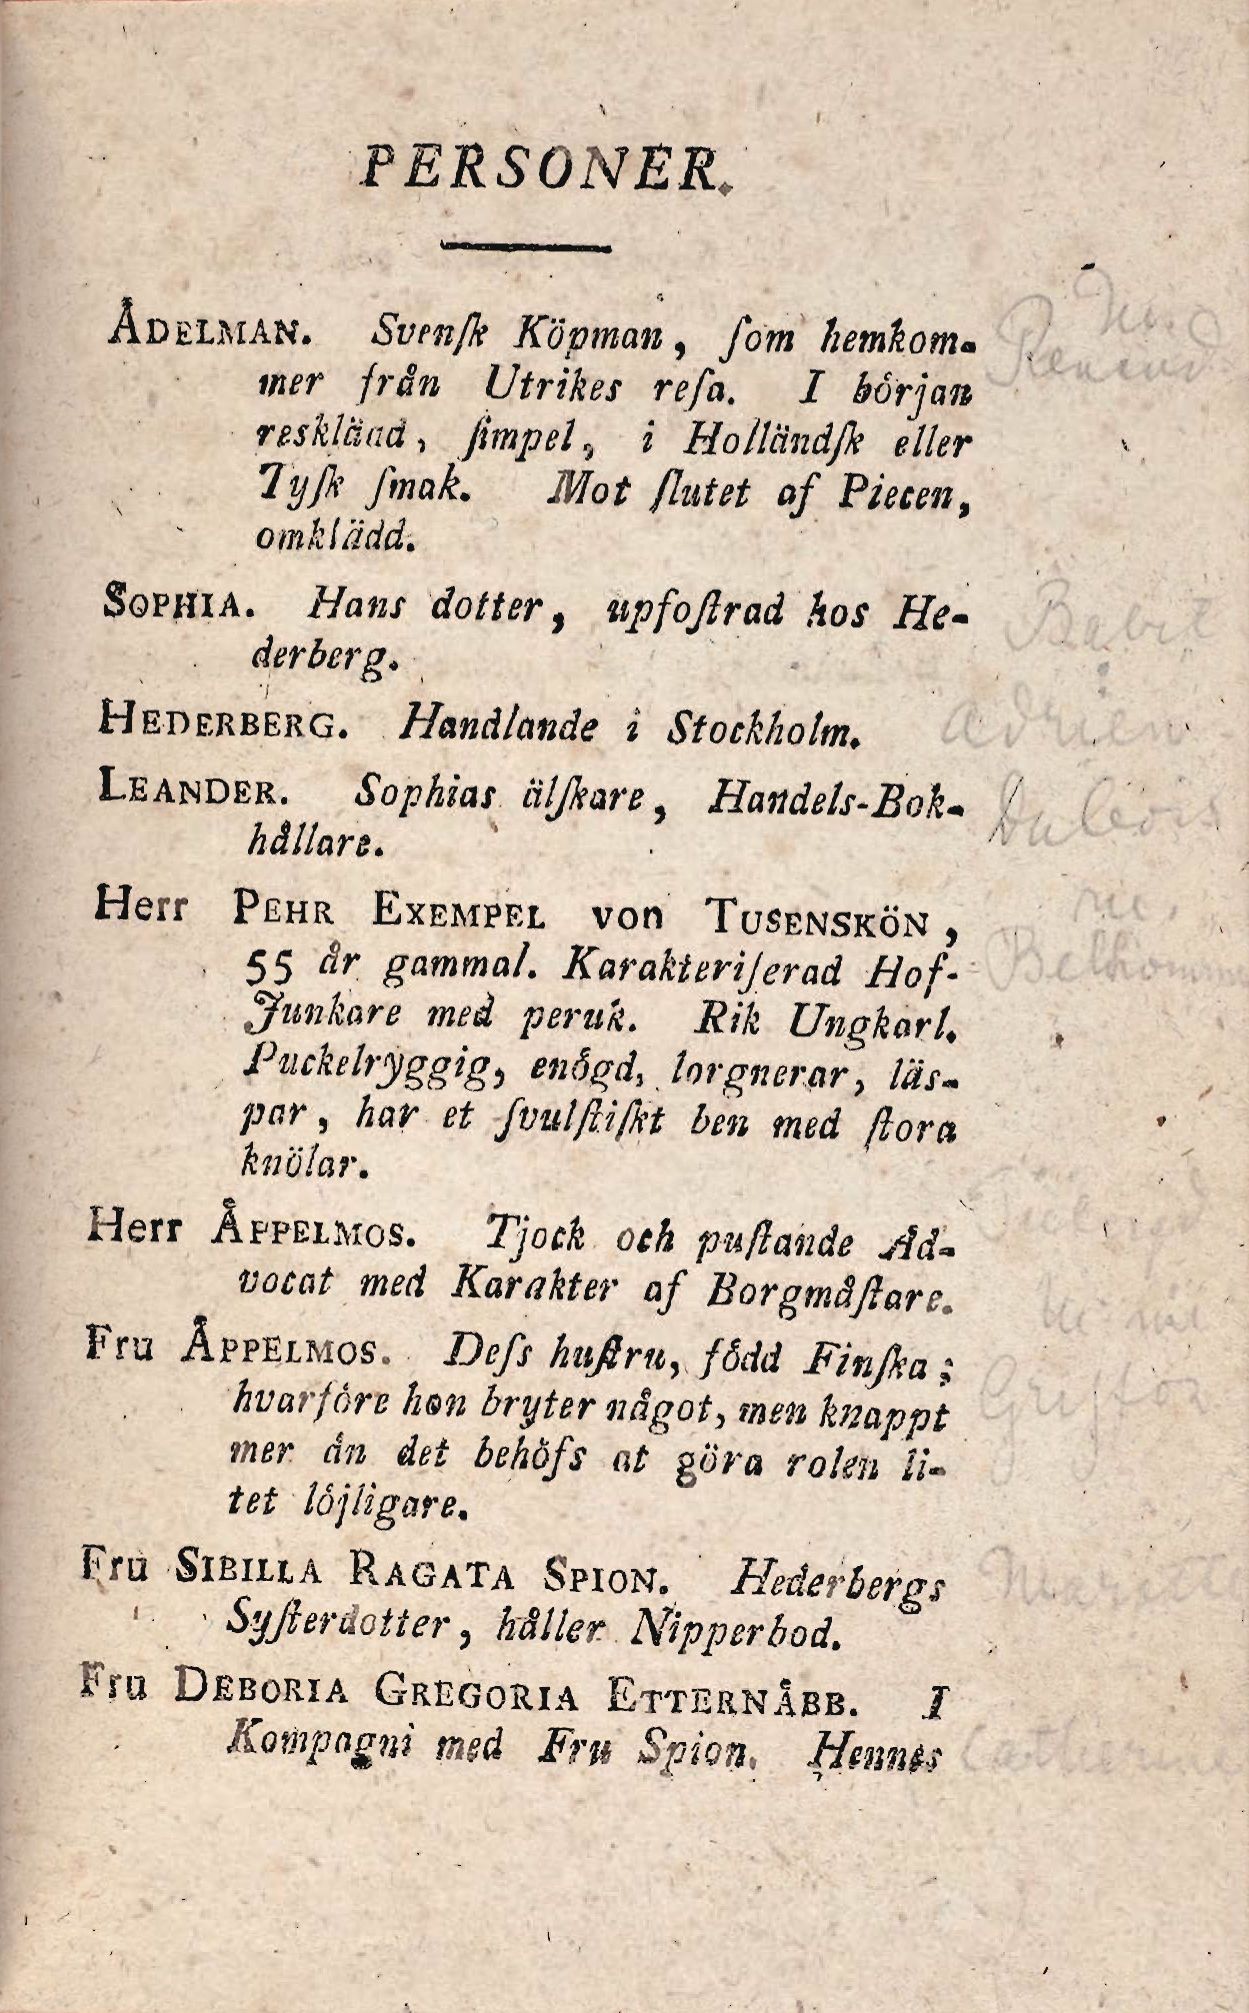 PERSONER.
ÅDELMAN. Svenſk Köpman, ſom hemkom-
mer från Utrikes reſa. I början
resklädd, ſimpel, i Holländſk eller
Tyſk ſmak. Mot ſlutet af Piecen,
omklädd.
SOPHIA. Hans dotter, upfoſtrad hos He-
derberg.
HEDERBERG. Handlande i Stockholm.
Adrien
LEANDER. Sophias älſkare, Handels-Bok-
Dubois
hållare.
Herr PEHR EXEMPEL von TUSENSKÖN,
55 år gammal. Karakteriſerad Hof-
Junkare med peruk. Rik Ungkarl.
Puckelryggig, enögd, lorgnerar, läs-
par, har et ſvulſtiſkt ben med ſtora
knölar.
Herr ÅPPELMOS. Tjock och puſtande Ad-
vocat med Karakter af Borgmåſtare.
Fru ÅPPELMOS. Deſs huſtru, född Finſka;
hvarföre hon bryter något, men knappt
mer än det behöfs at göra rolen li-
tet löjligare.
Fru SIBILLA RAGATA SPION. Hederbergs
Syſterdotter, håller Nipperbod.
Fru DEBORIA GREGORIA ETTERNÅBB. I
Kompagni med Fru Spion. Hennes
Catherine